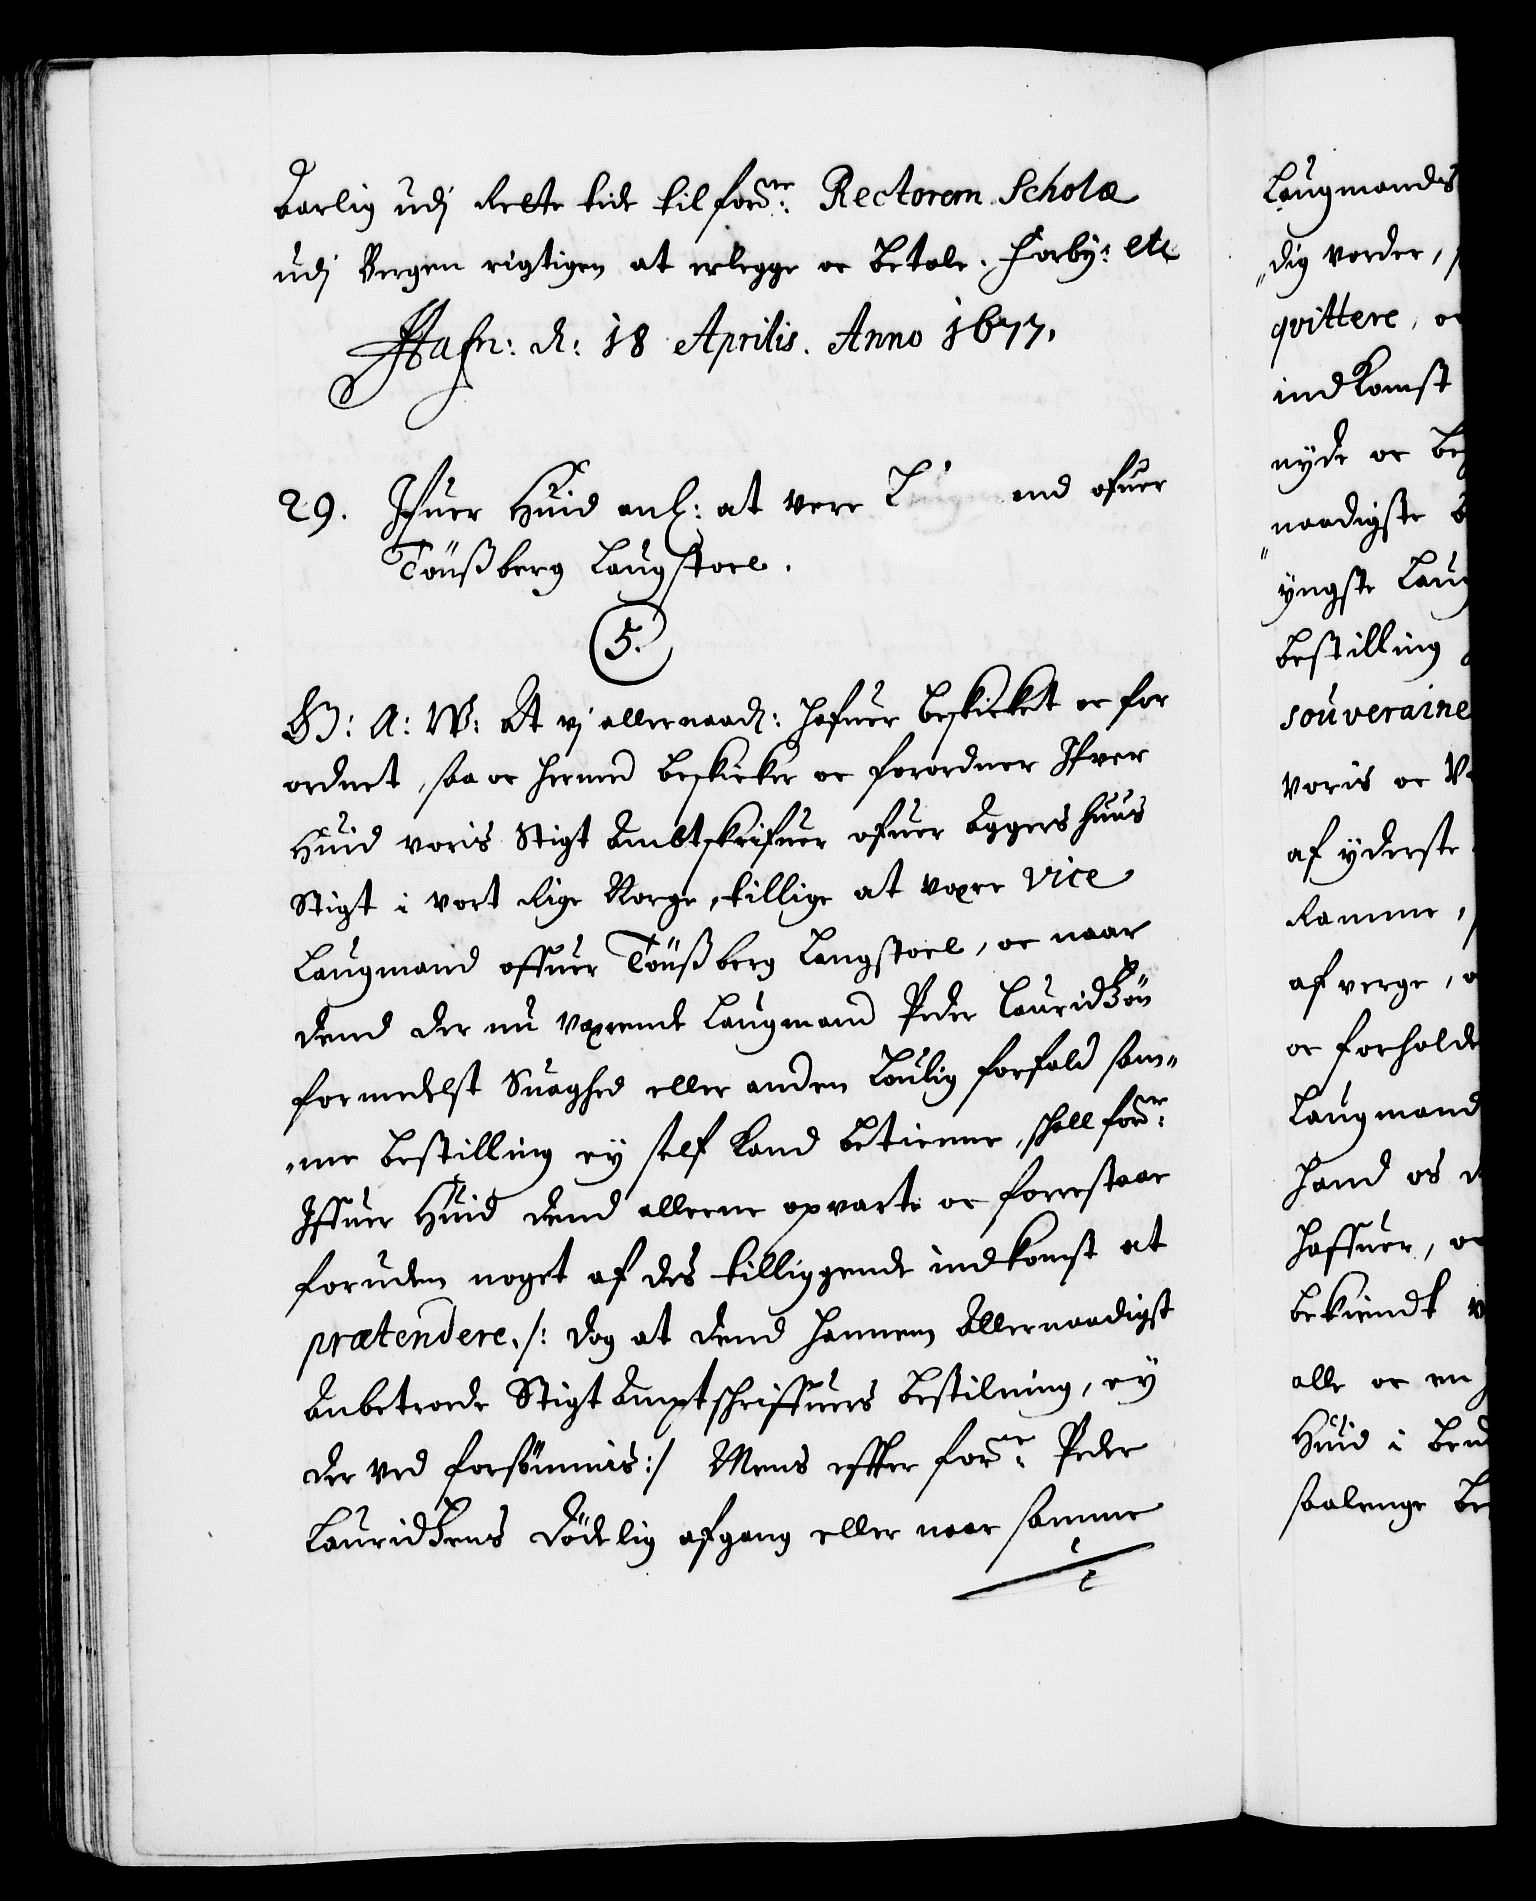 Aarlig udj Rette tide til forne: Rectorem Scholæ
udj Bergen rigtigen at erlegge oc betale. Forby: etc
Hafn: d: 18 Aprilis. Anno 1677.
29. Ifuer Huid anl: at vere Laugmand ofuer
Tönßberg Laugstoel.
5.
G: A: W: At vj allernaad: hafuer beskicket oc for
ordnet, saa oc hermed beskicker oc forordner Ifver
Huid voris Stigt Ambtskrifuer ofuer Aggershuus
Stigt i vort Rige Norge, tillige at være vice
Laugmand offuer Tönßberg Laugstoel, oc naar
dend der nu værende Laugmand Peder Lauridtzön
formedelst Suaghed eller anden Loulig forfald sam-
me bestilling ey self kand betienne, schall forne:
Iffuer Huid dend allerne opvarte oc forrestaar
foruden noget af des tilliggende indkomst at
prætendere /: dog at dend hannem Allernaadigst
Anbetroede Stigt Amptschriffuers bestilning, ey
der ved forsömmis :/ Mens effter forne: Peder
Lauridtzens dödelig afgang eller naar samme
Laugmands
dig vorder,
qvittere, oc
indkomst
nyde oc
naadigste
yngste
bestilling
souveraine
voris oc
af yderste
Ramme,
af verge,
oc forholde
Laugmand
hand os
haffuer, oc
bekiendt
alle oc en
Huid i
saalenge